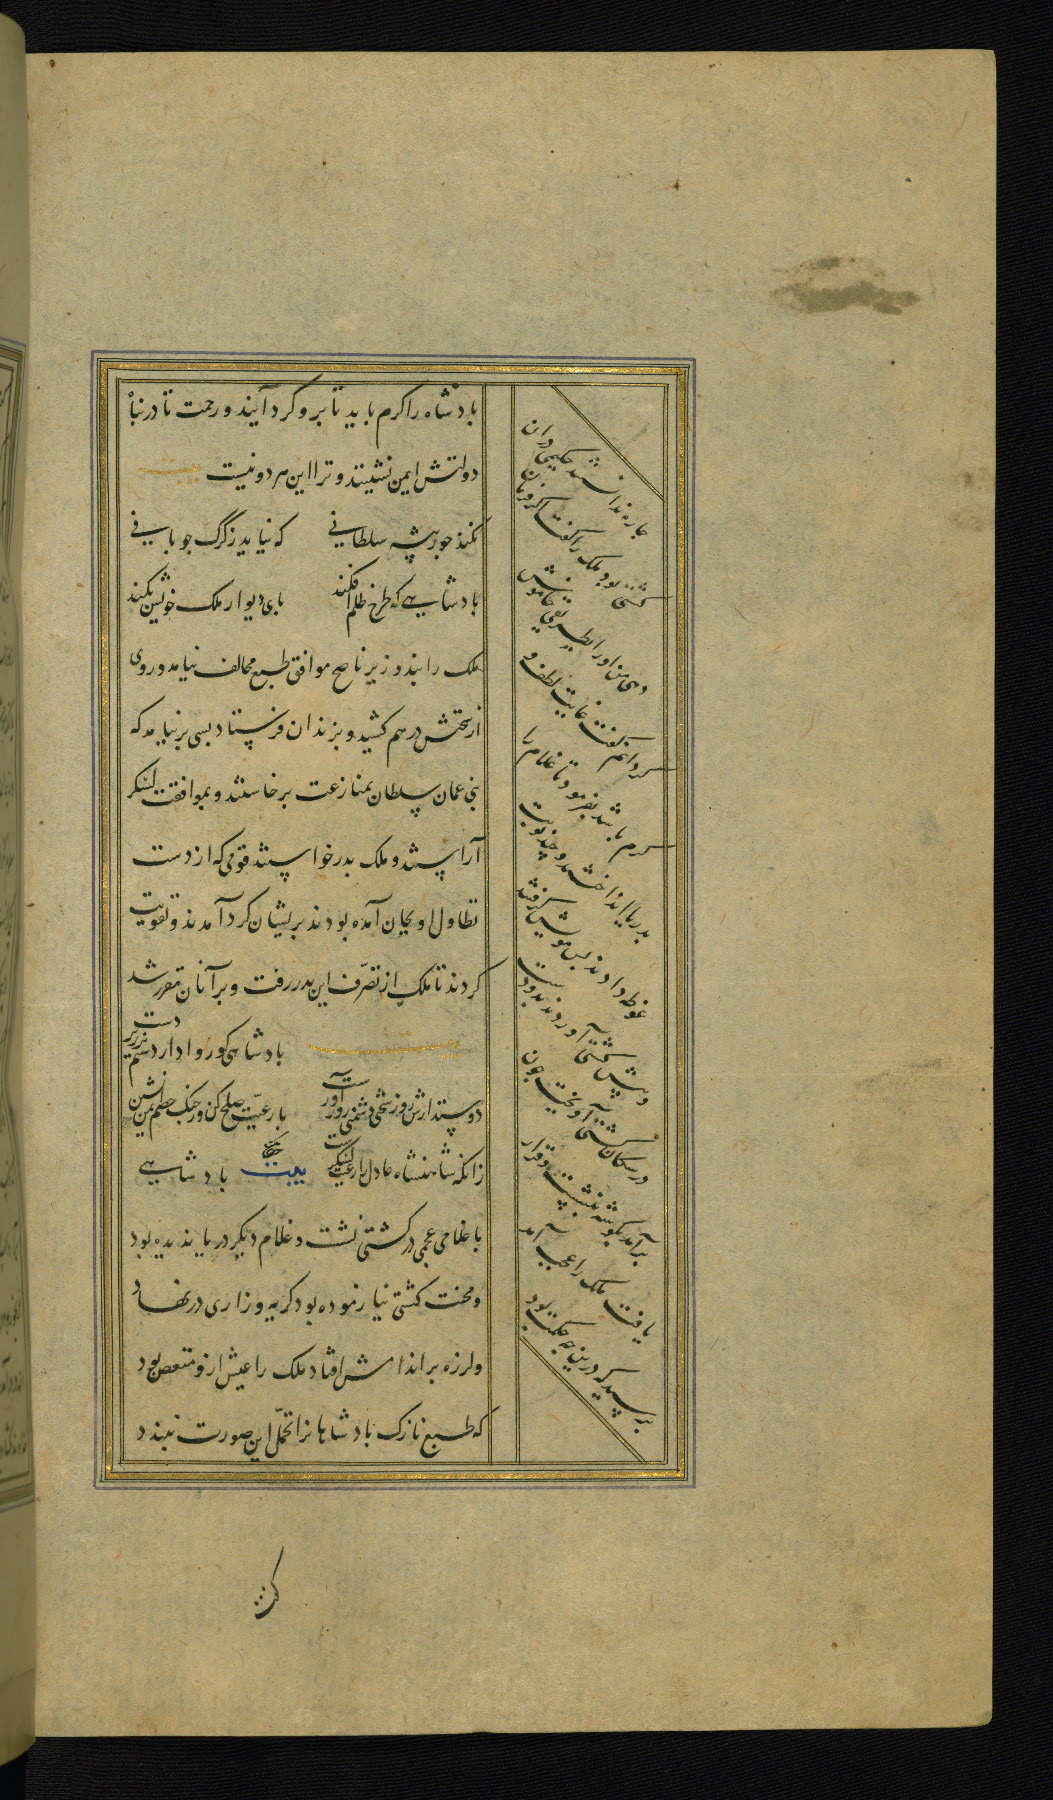 بادشاه را کرم باید تا برو کرد آیند و رحمت تا در بناه
دولتش ایمن نشینند و ترا این هر دو نیست
نکند جور بیشه سلطانی که نیاید ز کرک جوبانی
بادشاهی که طرح ظلم افکند بای دیوار ملک خویش بکند
ملک را بند وزیر ناصح موافق طبع مخالف نیامد و روی
از سخنش درهم کشید و بزندان فرستاد بسی برنیامد که
بنی عمان سلطان بمنازعت برخاستند و بموافقت لشکر
آراستند و ملک بدر خواستند قومی که از دست
تطاول او بجان آمده بودند بریشان کرد آمدند و تقویت
کردند تا ملک از تصرف این بدر رفت و بر آنان مقرر شد
بادشاهی کو روا دارد ستم بر زیردست
دوستدارش روز سختی دشمن زورآورست با رعیت صلح کن وز جنک خصم ایمن نشین
زانکه شاهنشاه عادل را رعیت لشکرست حکایت بادشاهی
با غلامی عجمی در کشتی نشست و غلام دیکر دریا ندیده بود
و محنت کشتی نیازموده بود کریه و زاری در نهاد
و لرزه بر اندامش افتاد ملک را عیش ازو منغص بود
که طبع نازک بادشاهانرا تحمل این صورت نبندد
جاره ندانستند حکیمی در آن
کشتی بود ملک را کفت اکر فرمان
دهی من او را بطریقی خاموش
کردانم کفت غایت لطف و
کرم باشد بفرمود تا غلام را
بدریا انداختند و چند نوبت
غوطه دادند بس مویش کرفتند
و بیش کشتی آوردند بدو دست
در سکان کشتی آویخت جون
برآمد بکوشه بنشست و قرار
یافت ملک را عجب آمد
برسید که درین چه حکمت بود